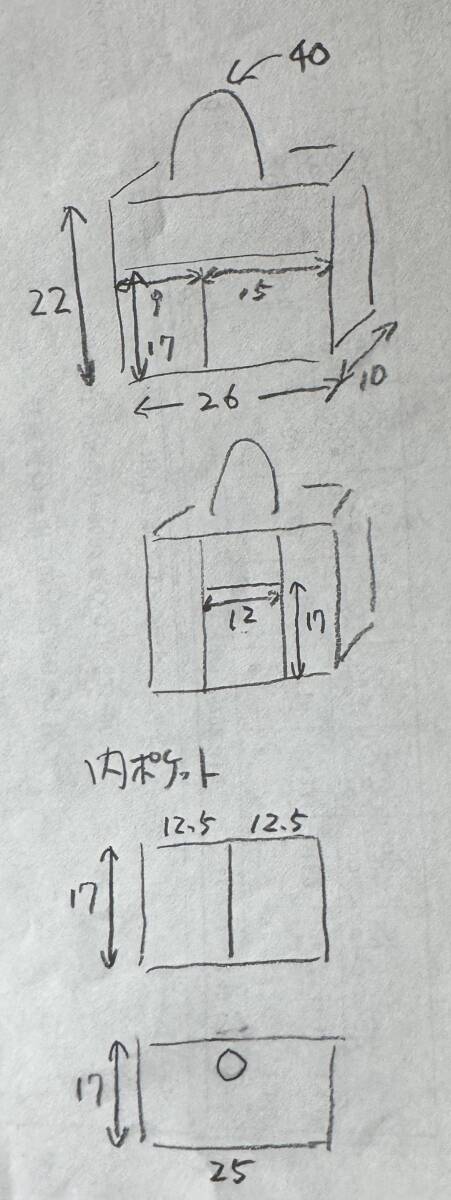 40
22
9
15
17
26
10
12
17
内ポケット
12.5 12.5
17
17
25